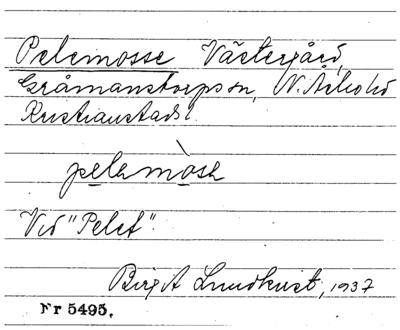 Pelemosse Västergård,
Gråmanstorps sn, N. Åsbo hd
Kristianstads l.
pelemòse
Vid "Pelet".
Birgit Lundkvist, 1937
Nr 5495.